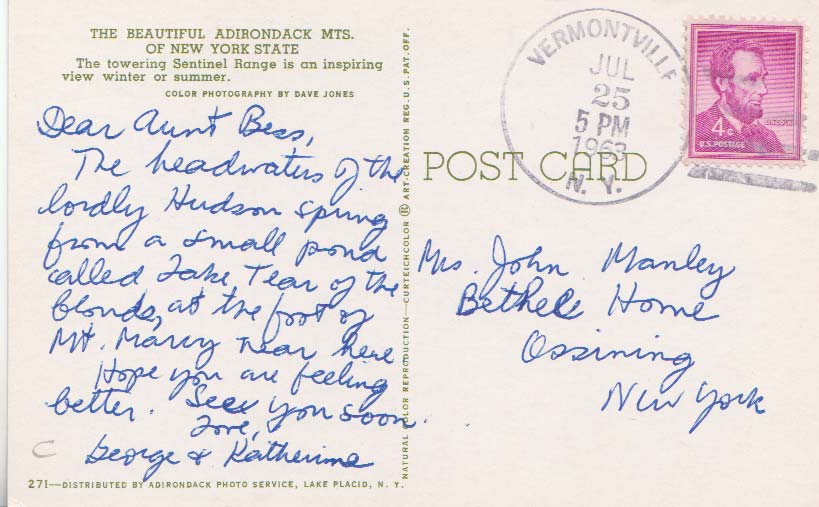 THE BEAUTIFUL ADIRONDACK MTS.
OF NEW YORK STATE
The towering Sentinel Range is an inspiring
view winter or summer.
COLOR PHOTOGRAPHY BY DAVE JONES
Dear Aunt Bess,
The headwaters of the
lordly Hudson spring
from a small pond
called Lake Tear of the
Clouds, at the foot of
Mt. Marcy near here
Hope you are feeling
better. See you soon.
Love,
George & Katherine
271—DISTRIBUTED BY ADIRONDACK PHOTO SERVICE, LAKE PLACID, N. Y.
NATURAL COLOR REPRODUCTION—CURTEICHCOLOR ® ART-CREATION REG. U.S. PAT. OFF.
POST CARD
VERMONTVILLE
JUL
25
5 PM
1963
N. Y.
4¢
LINCOLN
U.S. POSTAGE
Mrs. John Manley
Bethel Home
Ossining
New York
C